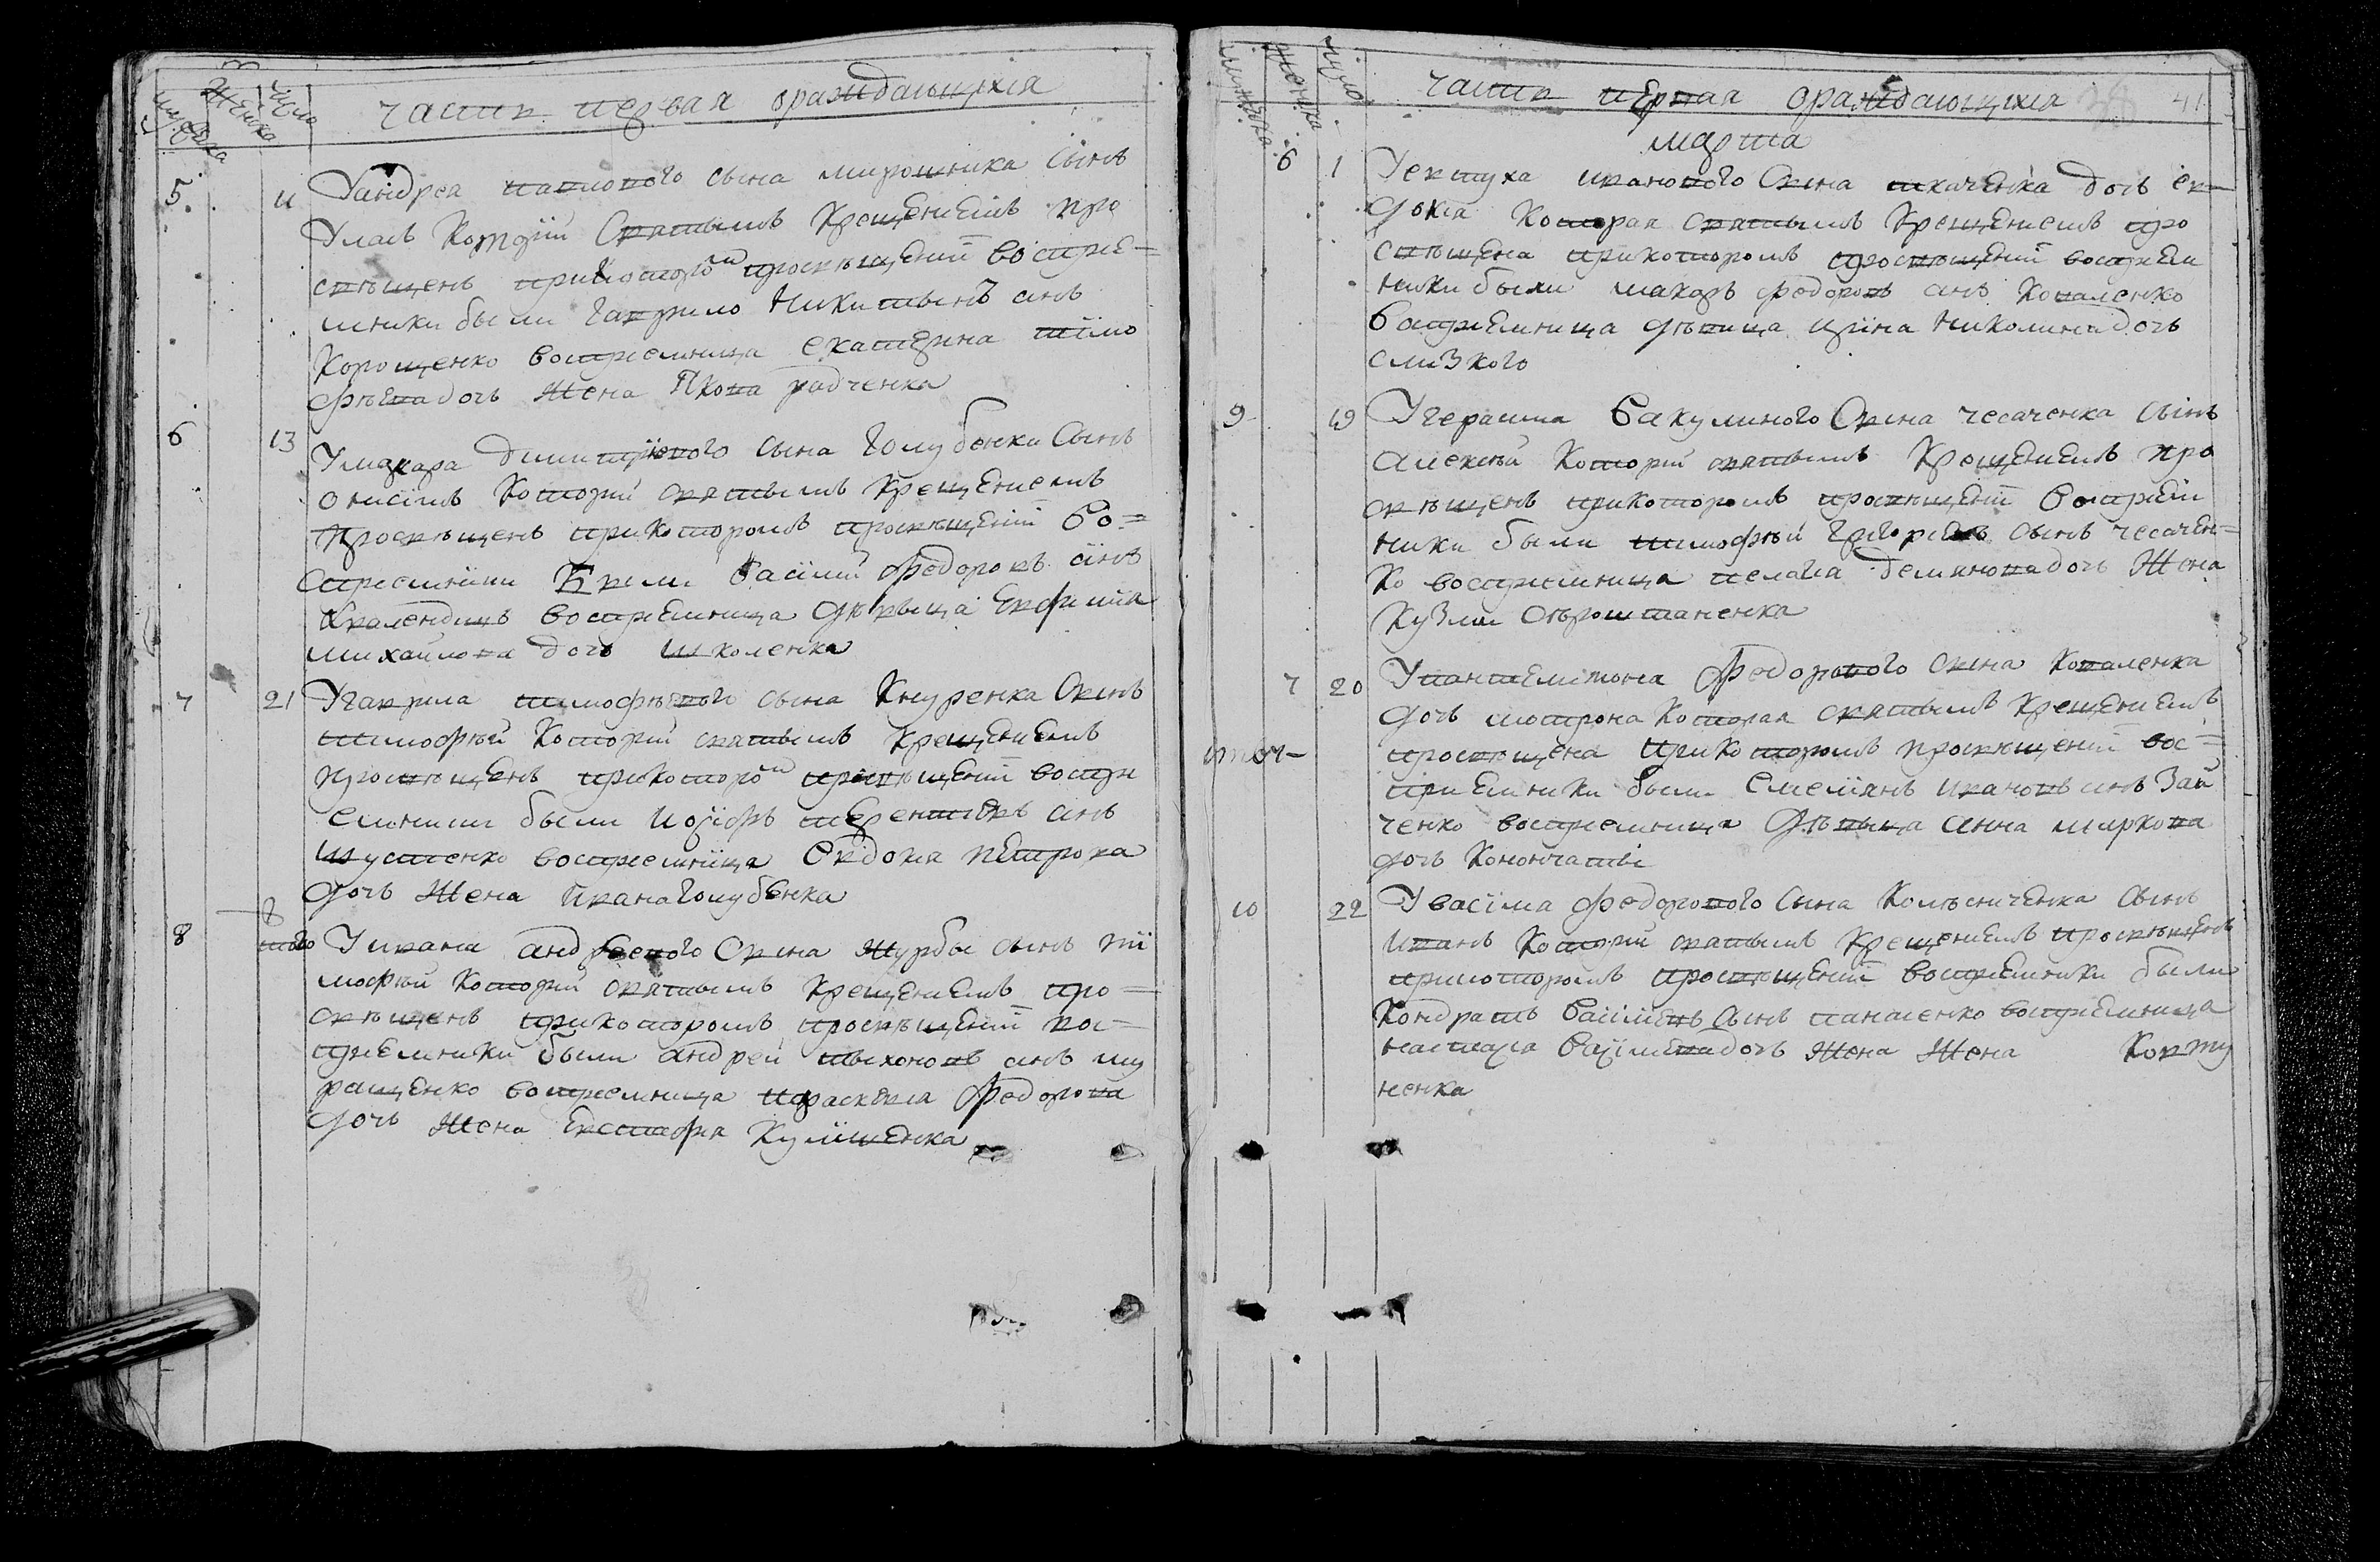 мужеска женска число
часть первая ораждающихся
5 11 У андрея павлового сына мирошника сынъ
Уласъ Который Святымъ Крещениемъ про
свѣщенъ прикоторомъ просвѣщениї воспре=
мники были Гаврило Никитинъ снъ
Корощенко воспремница екатерина тїмо
фѣева дочь жена Якова радченка
6 13 У макара димитриевого сына Голубенки Сынъ
онисїмъ Которий святымъ Крещениемъ
Просвѣщенъ прикоторомъ просвѣщениї во=
спремники были Васїлий Федоровъ снъ
воспремница дѣвыца Евфимїя
михайлова дочь школенка
7 21 У гаврила тимофѣевого сына Кнуренка Сынъ
тимофѣй Которий святымъ Крещениемъ
просвѣщенъ прикоторомъ просвѣщениї воспри
емники были Иосїфъ терентиевъ снъ
Шустенко воспремница Євдокия петрова
дочь Жена Ивана Голубенка
8
8 того У ивана андреевого Сина журбы сынъ ти
мофѣй Которий святымъ Крещениемъ про=
свѣщенъ прикоторомъ просвѣщениї вос=
приемники были андрей тихоновъ снъ му
ращенко воспремница параскевия Федорова
дочь Жена Евстафия Кулїшенка
мужеска женска число
часть первая ораждающихся 41
марта
6 1 У евтуха иванового Сина ткаченка дочь ев=
докия Которая святымъ Крещениемъ про
свѣщена прикоторомъ просвѣщениї воспрем
ники были макаръ федоровъ снъ Коваленко
Воспремница дѣвица ирїна Николина дочь
слизкого
9 19 У герасима Вакулиного Сина чесаченка сынъ
алексѣй Которий святымъ Крещениемъ про
свѣщенъ прикоторомъ просвѣщениї воспрем
ники были тимофѣй григориевъ сынъ чесачен=
ко воспремница пелагия демянова дочь Жена
Кузми
7 20 У пантелимона Федорового сина Коваленка
дочь мотрона Которая святымъ Крещениемъ
просвѣщена прикоторомъ просвѣщениї вос=
приемники были Емелїянъ ивановъ снъ Зай
ченко воспремница Дѣвыца анна миркова
дочь
10 22 У васїлия федорового сына Колѣсниченка сынъ
иванъ Которий святымъ Крещениемъ просвѣщенъ
прикоторомъ просвѣщениї воспремники были
Кондратъ Васїлиевъ сынъ панасенко воспремница
настасїя Васїлиева дочь жена жена Ковту
ненка